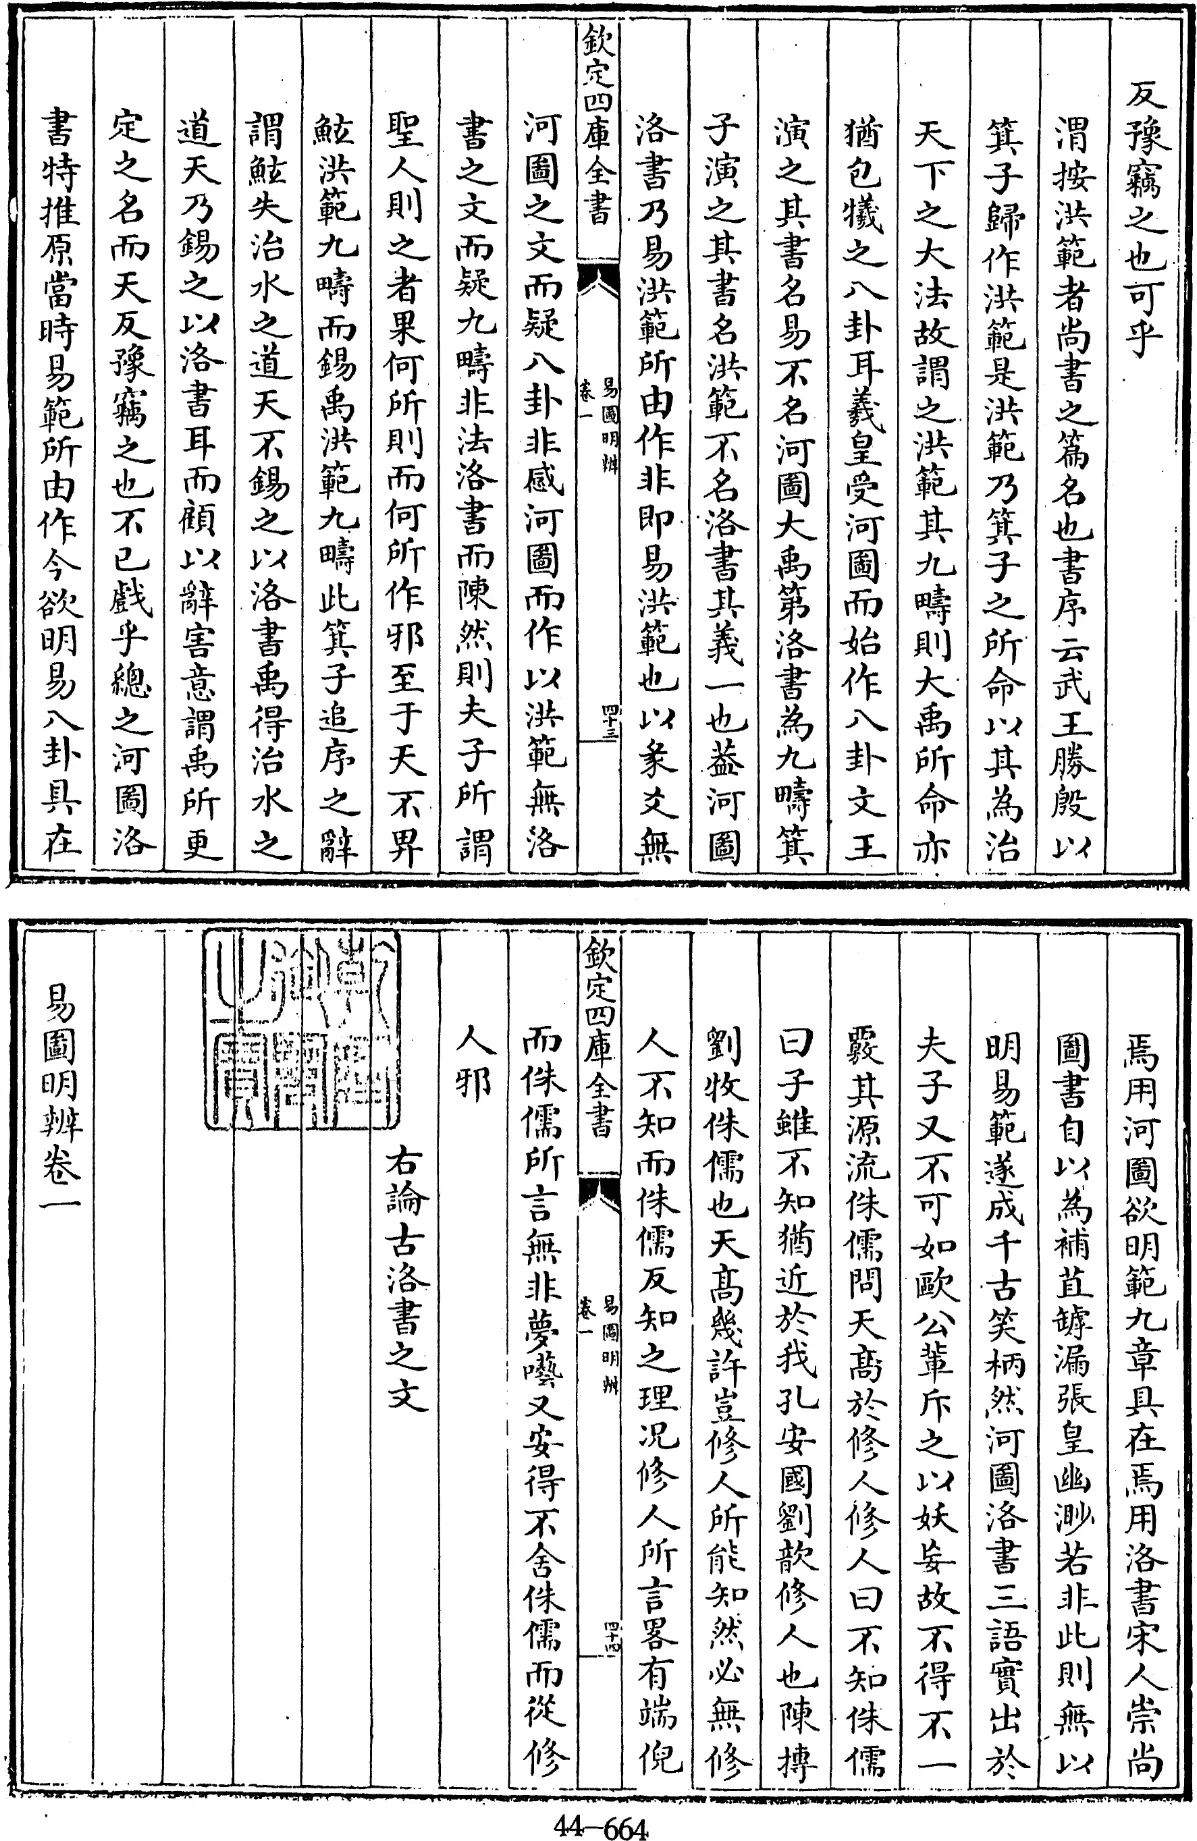 反豫竊之也可乎
渭按洪範者尚書之篇名也書序云武王勝殷以
箕子歸作洪範是洪範乃箕子之所命以其為治
天下之大法故謂之洪範其九疇則大禹所命亦
猶包犧之八卦耳羲皇受河圖而始作八卦文王
演之其書名易不名河圖大禹第洛書為九疇箕
子演之其書名洪範不名洛書其義一也葢河圖
洛書乃易洪範所由作非即易洪範也以彖爻無
欽定四庫全書
易圖明辨
卷一
四十三
河圖之文而疑八卦非感河圖而作以洪範無洛
書之文而疑九疇非法洛書而陳然則夫子所謂
聖人則之者果何所則而何所作邪至于天不畀
鮌洪範九疇而錫禹洪範九疇此箕子追序之辭
謂鮌失治水之道天不錫之以洛書禹得治水之
道天乃錫之以洛書耳而顧以辭害意謂禹所更
定之名而天反豫竊之也不已戲乎總之河圖洛
書特推原當時易範所由作今欲明易八卦具在
焉用河圖欲明範九章具在焉用洛書宋人崇尚
圖書自以為補苴罅漏張皇幽渺若非此則無以
明易範遂成千古笑柄然河圖洛書三語實出於
夫子又不可如歐公輩斥之以妖妄故不得不一
覈其源流侏儒問天高於修人修人曰不知侏儒
曰子雖不知猶近於我孔安國劉歆修人也陳摶
劉牧侏儒也天高幾許豈修人所能知然必無修
人不知而侏儒反知之理况修人所言畧有端倪
欽定四庫全書
易圖明辨
卷一
四十四
而侏儒所言無非夢囈又安得不舍侏儒而從修
人邪
右論古洛書之文
乾隆御覽之寶
易圖明辨卷一
44-664